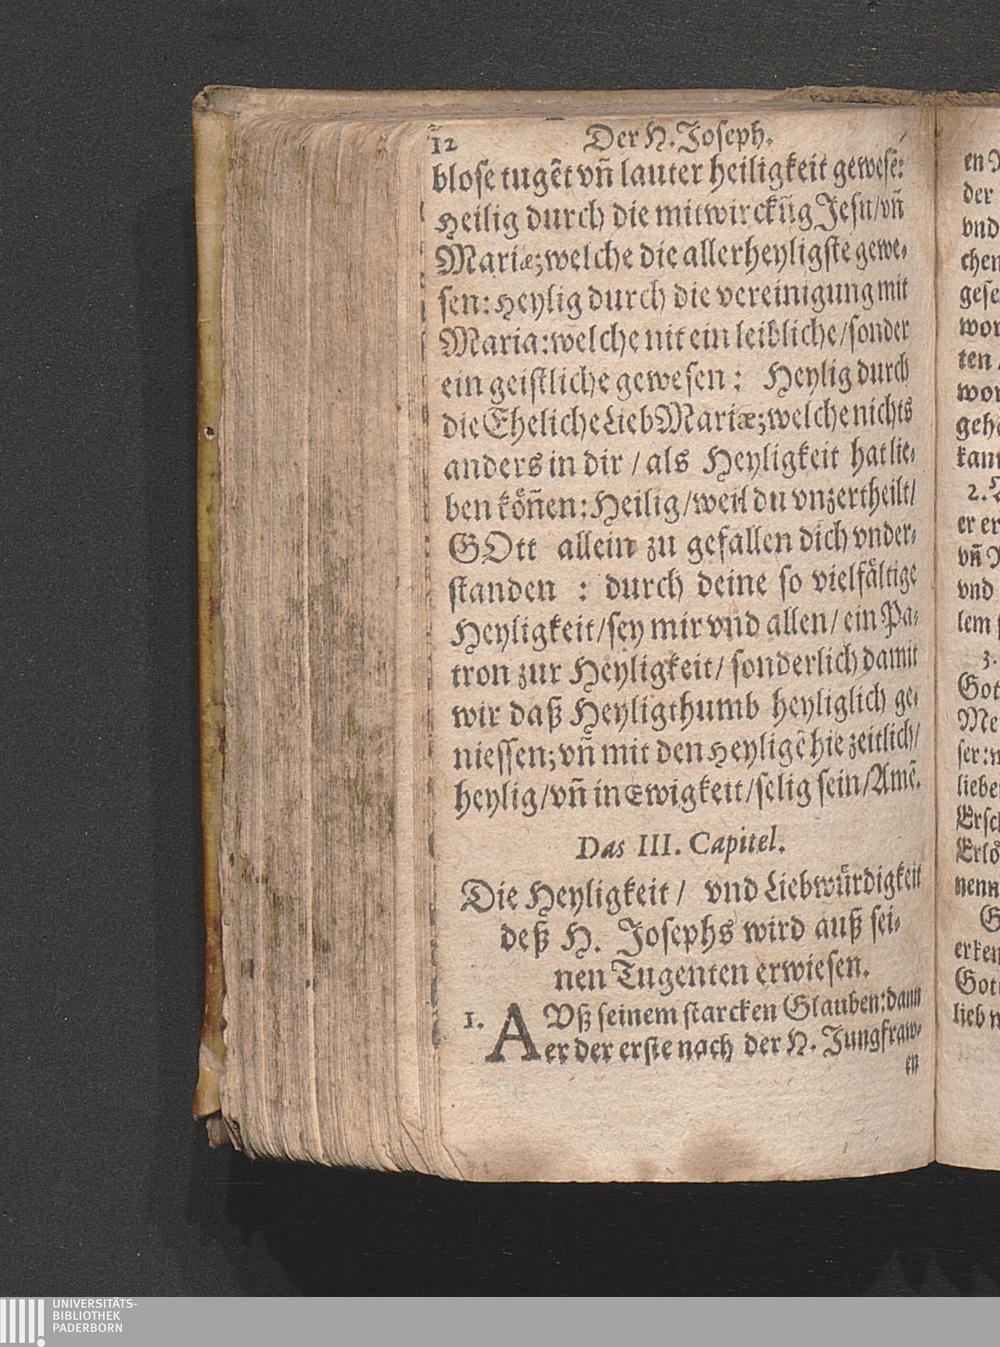 12 Der H. Joseph.
blose tugẽt vñ lauter heiligkeit gewesẽ:
Heilig durch die mitwirckũg Jesu/vñ
Mariæ; welche die allerheyligste gewe-
sen: Heylig durch die vereinigung mit
Maria: welche nit ein leibliche/sonder
ein geistliche gewesen: Heylig durch
die Eheliche Lieb Mariæ; welche nichts
anders in dir / als Heyligkeit hat lie-
ben köñen: Heilig/weil du vnzertheilt/
GOtt allein zu gefallen dich vnder-
standen : durch deine so vielfältige
Heyligkeit/sey mir vnd allen/ ein Pa-
tron zur Heyligkeit/ sonderlich damit
wir daß Heyligthumb heyliglich ge-
niessen; vñ mit den Heyligẽ hie zeitlich/
heylig/vñ in Ewigkeit/selig sein/Amẽ.
Das III. Capitel.
Die Heyligkeit / vnd Liebwürdigkeit
deß H. Josephs wird auß sei-
nen Tugenten erwiesen.
1. AVß seinem starcken Glauben: dann
er der erste nach der H. Jungfraw-
en
en
der
vnd
chen
gese
wor
ten
wor
geh
kan
2.
er er
vñ
vnd
lem
3.
Got
Me
ser:
liebe
Ersc
Erlö
nenn
G
erken
Got
lieb
UNIVERSITÄTS-
BIBLIOTHEK
PADERBORN